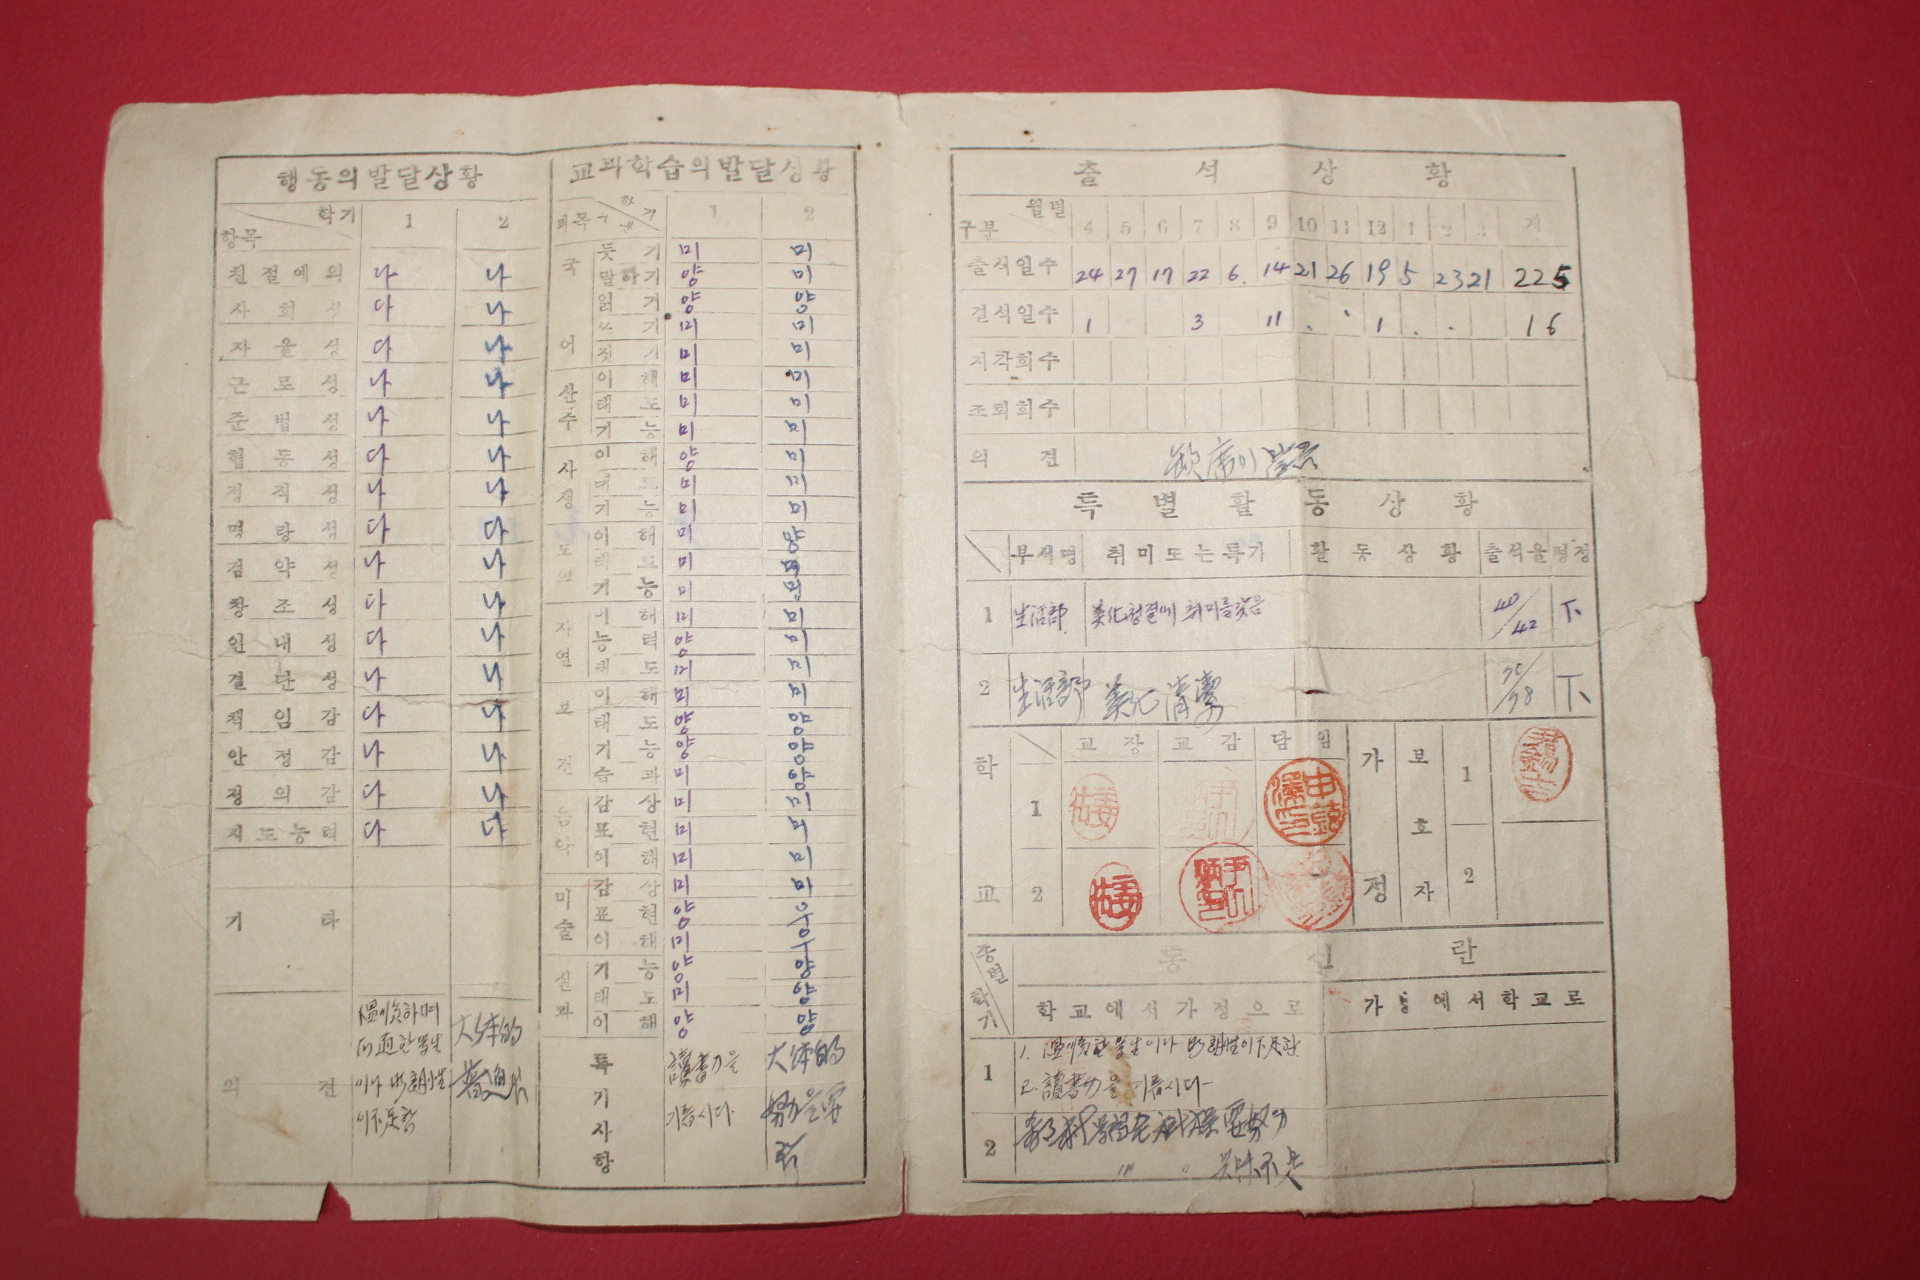 행동의발달상황
학기 1 2
항목
친절예의 나 나
사회성 다 나
자율성 다 나
근로성 나 나
준법성 나 나
협동성 다 나
정직성 나 나
명랑성 다 다
검약성 나 나
창조성 다 나
인내성 다 나
결단성 나 나
책임감 다 나
안정감 나 나
정의감 다 나
지도능력 다 다
기타
의견
大体的
교과학습의발달상황
과목 학기 1 2
국어
듯기 미 미
말하기 양 미
읽기 양 양
쓰기 미 미
짓기 미 미
산수
이해 미 미
태도 미 미
기능 미 미
사생
이해 양 미
태도 미 미
기능 미 미
도의
이해 미 양
태도 미
기능 미
자연
이해 미 미
능력 양 미
태도 미 미
보건
이해 미 미
태도 양 양
기능 양 양
습과 미 양
음악
감상 미 미
표현 미 미
이해 미 미
미술
감상 미 미
표현 양
이해 미
실과
기능 양 양
태도 미 양
이해 양 양
특기사항
讀書力을 기릅시다.
大体的 努力을要
출석상황
구분 월별 4 5 6 7 8 9 10 11 12 1 2 3 계
출석일수 24 27 17 22 6. 14 21 26 19 5 23 21 225
결석일수 1 3 11 1 16
지각회수
조퇴회수
의견
특별활동상황
부서명 취미도는특기 활동상황 출석율 평정
1 生活部 美化청결에 취미를 40/42 下
2 生活部 美化 淸潔 下
학교 교장 교감 담임 가정 보호자
1 1
2 2
종별 통신란
학기 학교에서가정으로 가정에서학교로
1 1.
2. 讀書力을 기릅시다-
2